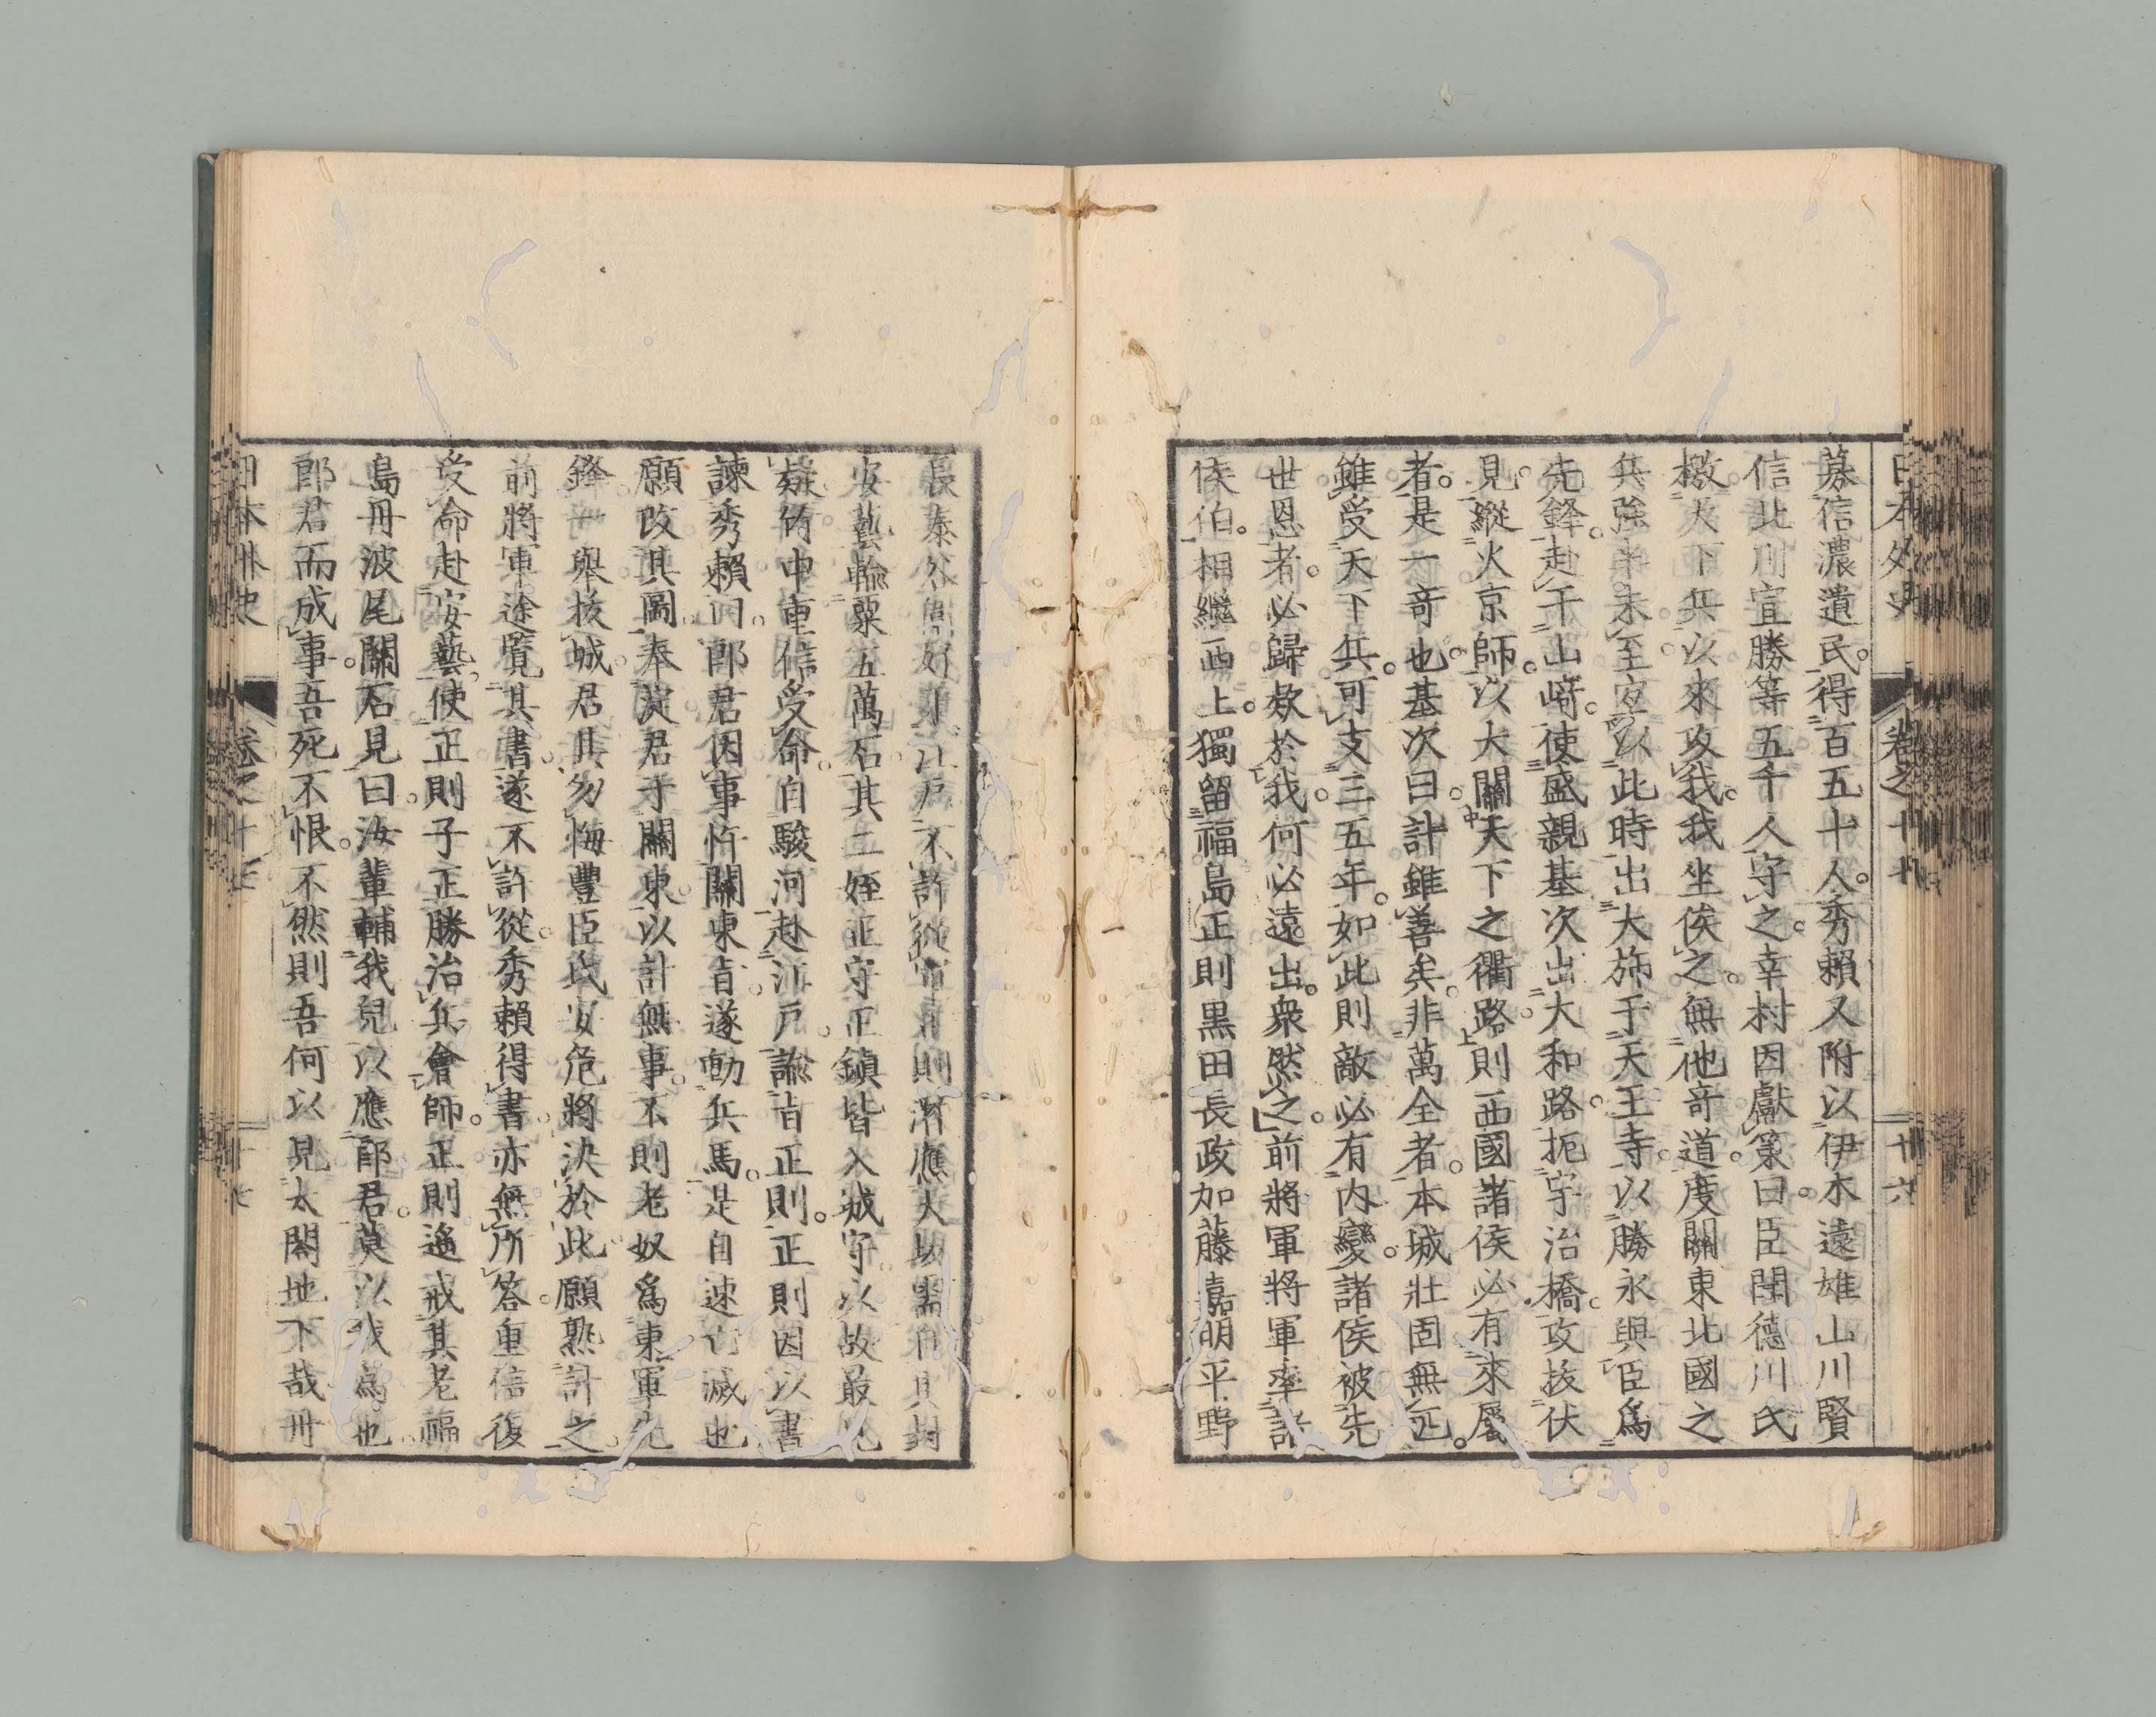 日本外史 卷之十七 十六
募信濃遺民得百五十人秀賴又附以伊木遠雄山川賢
信北川宣勝等五千人守之幸村因獻策曰臣聞德川氏
檄天下兵以來攻我我坐俟之無他奇道度關東北國之
兵強半未至宜以此時出大旆于天王寺以勝永與臣爲
先鋒赴于山﨑使盛親基次出大和路扼宇治橋攻拔伏
見縱火京師以中關大天下之衢路上則西國諸侯必有來屬
者是一奇也基次曰計雖善矣非萬全者本城壯固無匹
雖受天下兵可支三五年如此則敵必有內變諸侯被先
世恩者必歸欵於我何必遠出衆然之前將軍將軍率諸
侯伯相繼西上獨留福島正則黑田長政加藤嘉明平野
長泰 江戶不許從 正則 應大 其封
安藝輸粟五萬石其二姪正守正鎭皆入城守以故最見
疑竹中重信受命自駿河赴江戶諭旨正則正則因以書
諫秀賴曰郎君因事忤關東旨遂動兵馬是自速亡滅也
願改其圖奉淀君于關東以計無事不則老奴爲東軍先
鋒一舉拔城君其勿悔豐臣氏安危將決於此願熟計之
前將軍途覽其書遂不許從秀賴得書亦無所答重信復
受命赴安藝使正則子正勝治兵會師正則遙戒其老福
島丹波尾關石見曰汝輩輔我兒以應郎君莫以我爲也
郎君而成事吾死不恨不然則吾何以見太閤地下哉丹
日本外史 卷之十七 十七